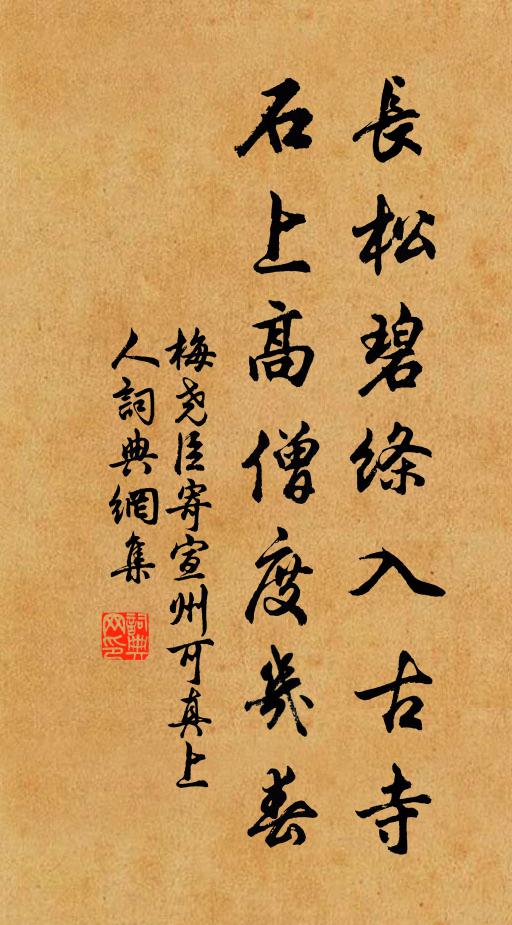 長松碧絛入古寺
石上高僧度幾春
梅尧臣寄宣州可真上
人詞典網集
詞典
网印